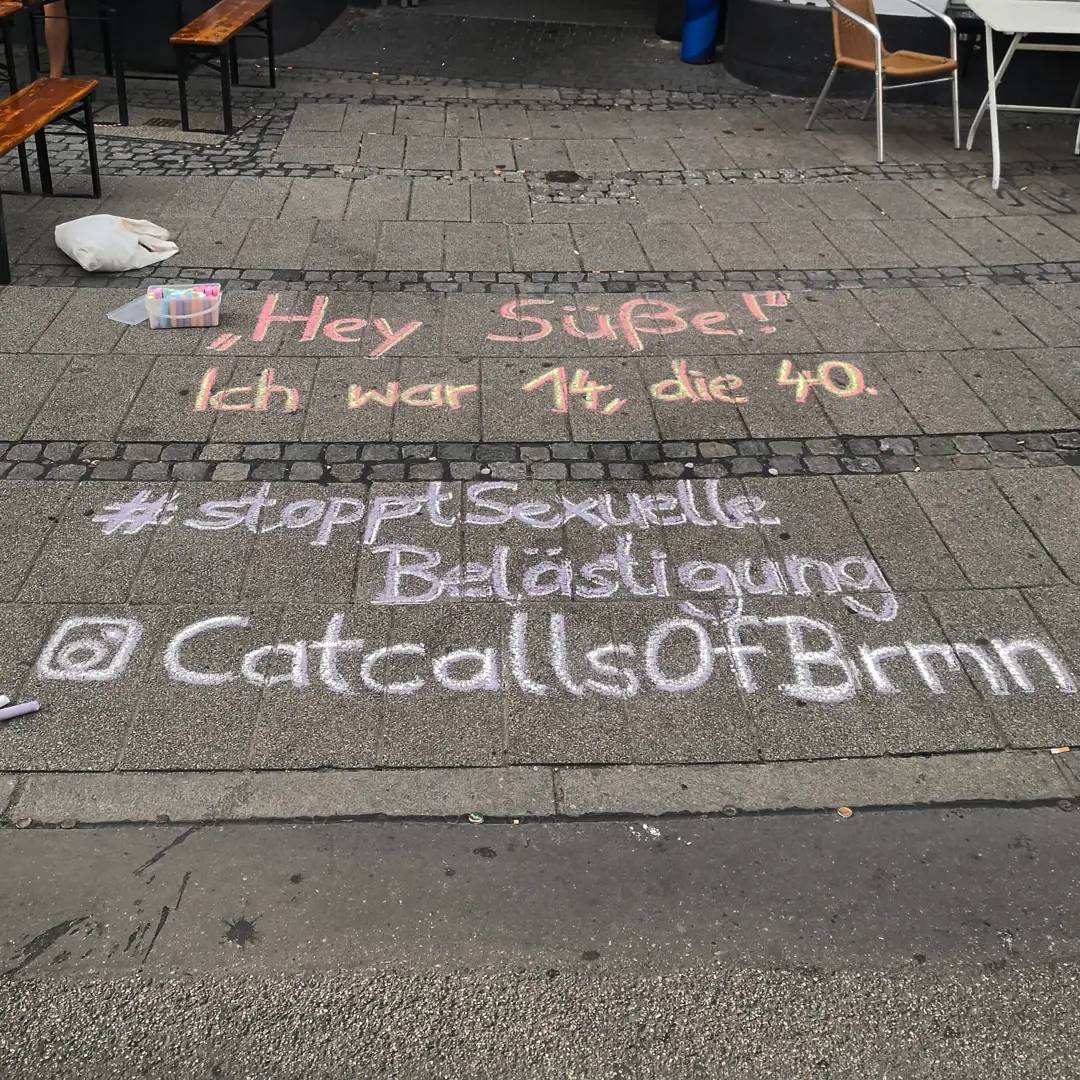 „Hey Süße!"
Ich war 14, die 40.
#stopptSexuelle
Belästigung
CatcallsOfBrmn